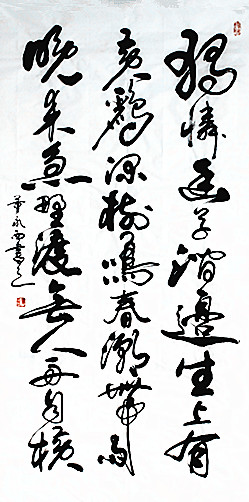 獨憐幽草澗邊生上有
黄鸝深樹鳴春潮帶雨
晚來急野渡無人舟自橫